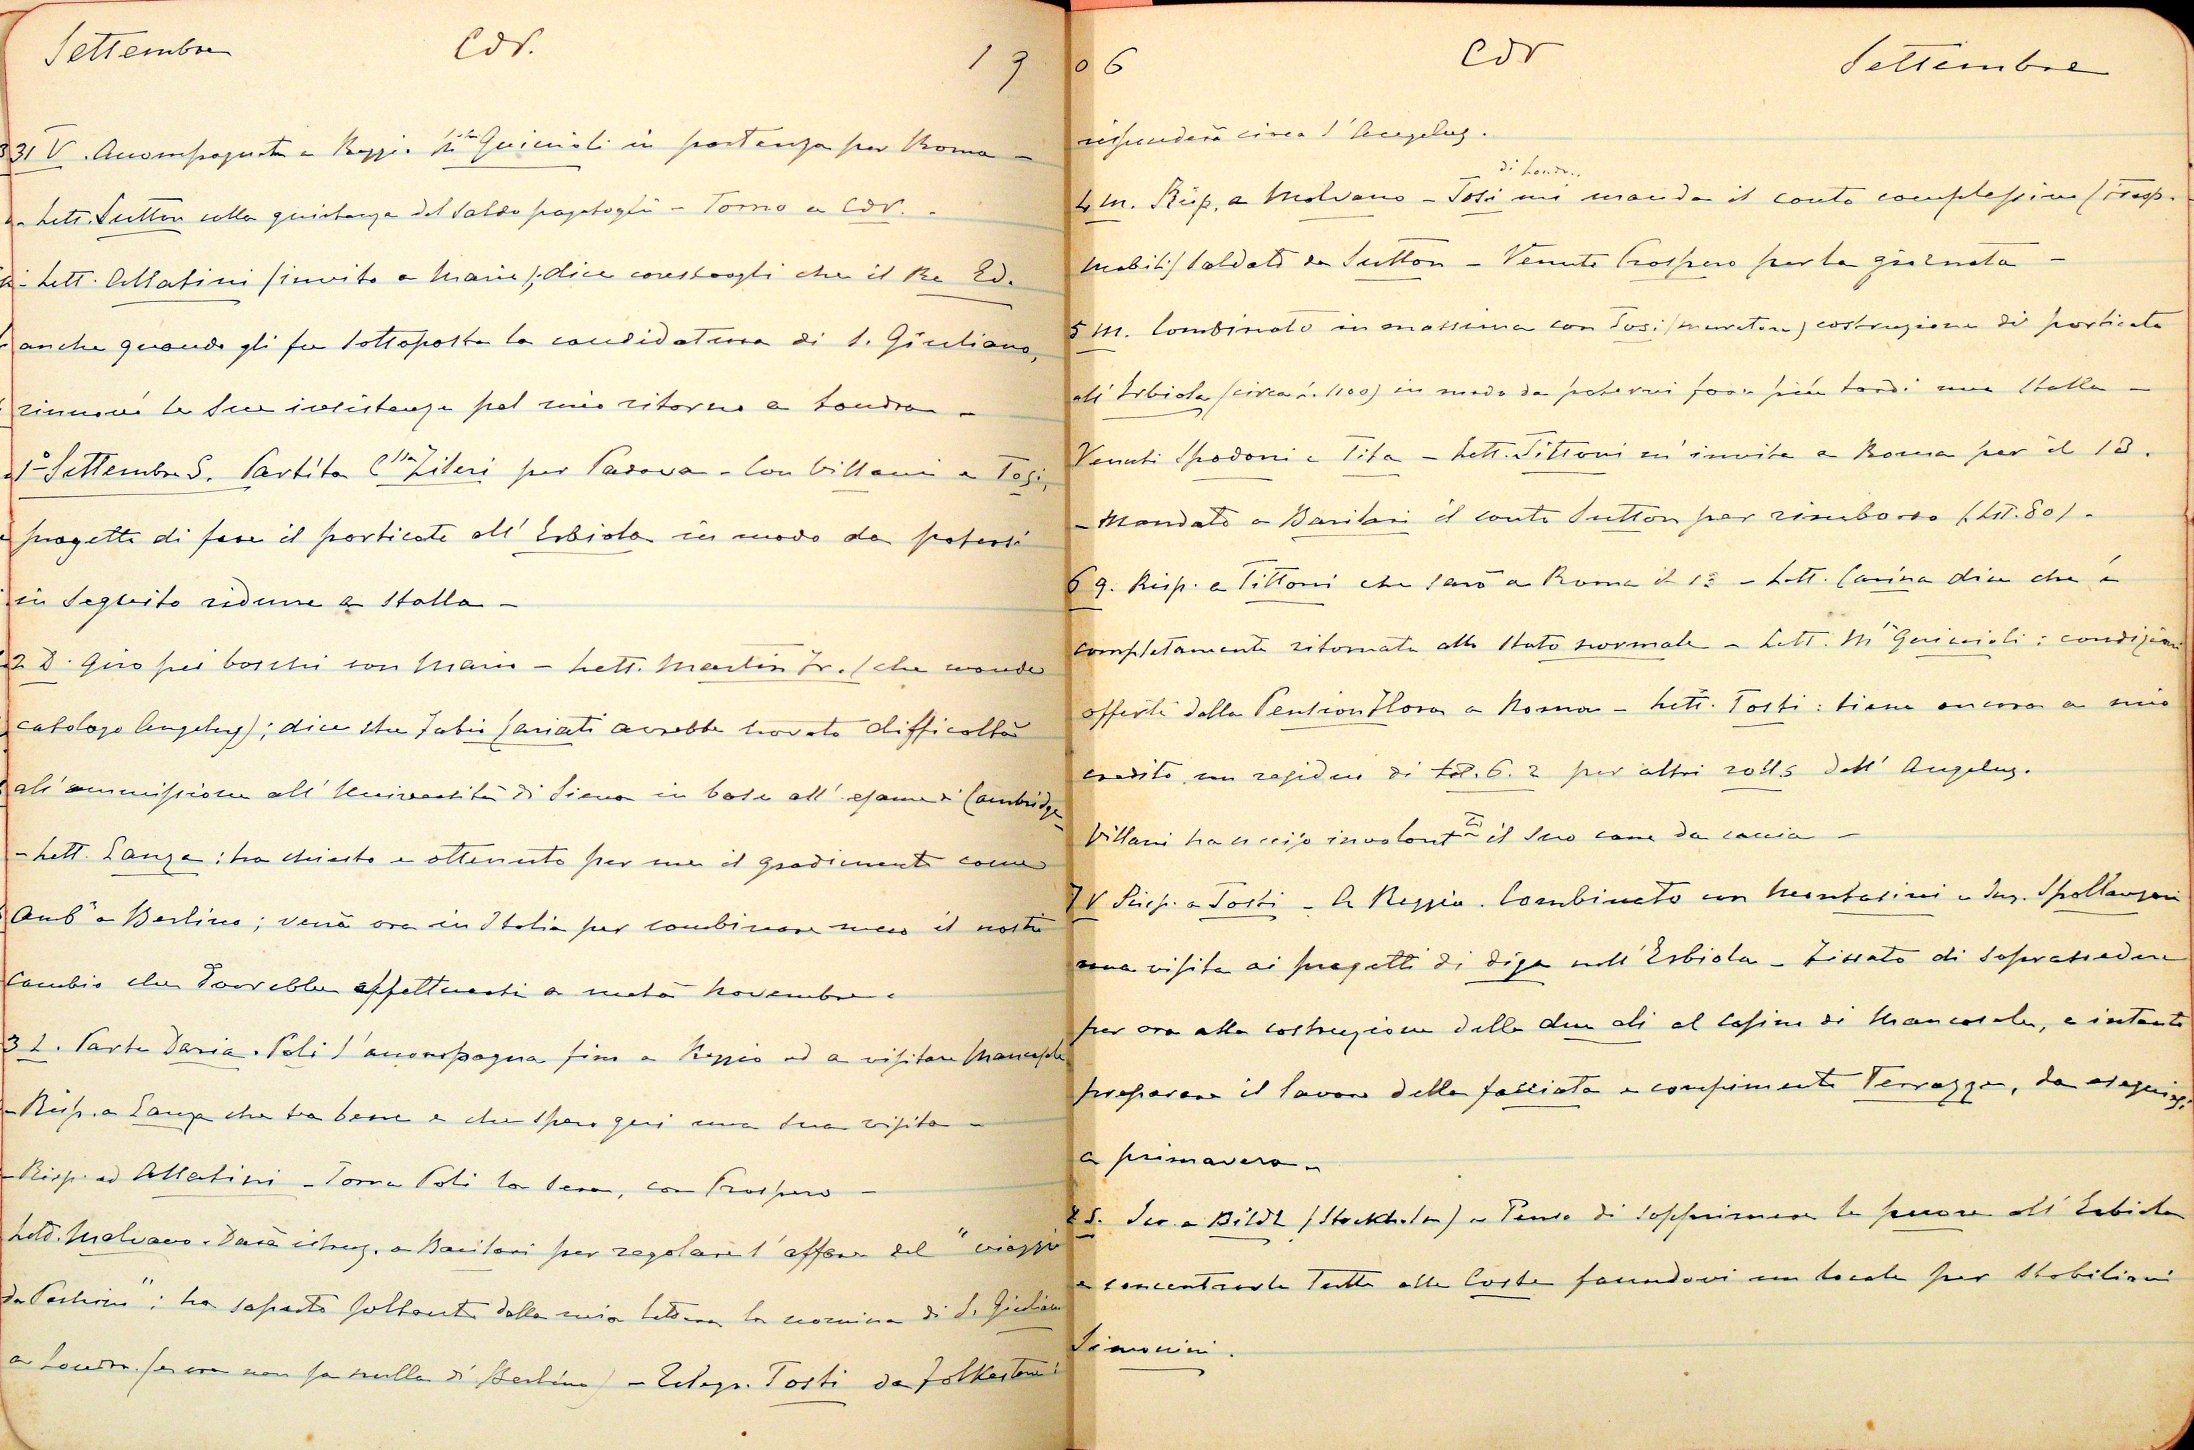 Settembre CdV. 19
31 V. Accompagnata a Reggio M.lla Guiccioli in partenza per Roma –
– Lett. Sutton colla quietanza del saldo pagatogli – Torno a CdV. –
– Lett. Allatini (invito a Mario); dice constargli che il Re Ed.
anche quando gli fu sottoposta la candidatura di S. Giuliano,
rinnovò le sue insistenze pel mio ritorno a Londra –
1º Settembre S. Partita C.ssa Zileri per Padova – Con Villani e Tosi,
progetto di fare il porticato all' Erbiola in modo da potersi
in seguito ridurre a stalla –
2 D. Giro pei boschi con Mario – Lett. Martin Jr. (che manda
catalogo Angelus); dice che Fabio Cariati avrebbe trovato difficoltà
all' ammissione all' Università di Siena in base all' esame di Cambridge –
– Lett. Lanza: ha chiesto e ottenuto per me il gradimento come
Amb.e a Berlino; verrà ora in Italia per combinare meco il nostro
cambio che dovrebbe effettuarsi a metà Novembre.
3 L. Parte Daria. Poli l' accompagna fino a Reggio ed a visitare Mancasale
– Risp. a Lanza che va bene e che spero qui una sua visita –
– Risp. ad Allatini – Torna Poli la sera, con Prospero –
Lett. Malvano. Darà istruz. a Barilari per regolare l' affare del "viaggio
da Pechino"; ha saputo soltanto dalla mia lettera la nomina di S. Giuliano
a Londra (e ora non sa nulla di Berlino) – Telegr. Tosti da Folkestone:
06 CdV Settembre
risponderà circa l' Angelus.
di Londra
4 M. Risp. a Malvano – Tosi mi manda il conto complessivo (trasp.
mobili) saldato da Sutton – Venuto Prospero per la giornata –
5 M. Combinato in massima con Tosi (muratore) costruzione di porticato
all' Erbiola (circa L. 1100) in modo da potervi fare più tardi una stalla –
Venuti Spadoni e Tita – Lett. Tittoni m' invita a Roma per il 13.
– Mandato a Barilari il conto Sutton per rimborso (Lst. 80).
6 G. Risp. a Tittoni che sarò a Roma il 13 – Lett. Carina dice che è
completamente ritornata allo stato normale – Lett. M.lla Guiccioli: condizioni
offerte dalla Pension Flora a Roma – Lett. Tosti: tiene ancora a mio
credito un residuo di Lst. 6.2 per altri rolls dell' Angelus.
Villani ha ucciso involont.te il suo cane da caccia –
7 V Risp. a Tosti – A Reggio. Combinato con Montasini e Ing. Spallanzani
una visita ai progetti di diga nell' Erbiola – Fissato di soprassedere
per ora alla costruzione delle due ali al casino di Mancasale, e intanto
preparare il lavoro della facciata e compimento Terrazze, da eseguirsi
a primavera –
8 S. Scr. a Bildt (Stockholm) – Penso di sopprimere le pecore all' Erbiola
e concentrarle tutte alle Coste facendovi un locale per stabilirvi
Simonini.